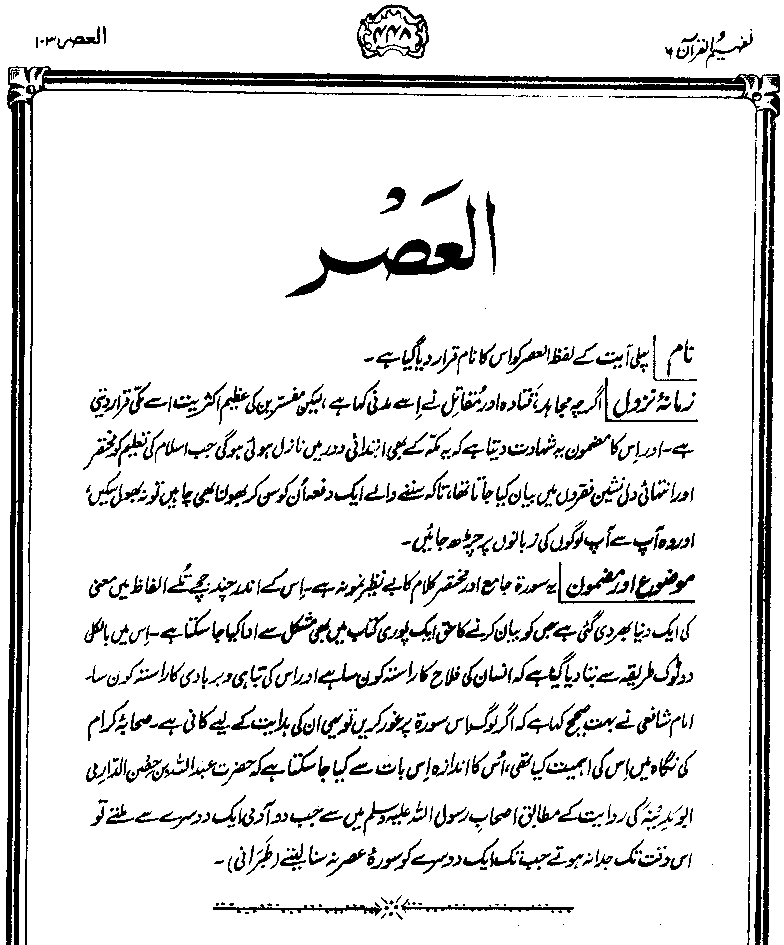 تفہیم القرآن ۶
۴۴۸
العصر ۱۰۳
العَصْر
نام پہلی آیت کے لفظ العصر کو اس کا نام قرار دیا گیا ہے۔
زمانۂ نزول اگرچہ مجاہد، قتادہ اور مُقاتل نے اِسے مدنی کہا ہے، لیکن مفسرین کی عظیم اکثریت اسے مکی قرار دیتی
ہے۔ اور اِس کا مضمون یہ شہادت دیتا ہے کہ یہ مکہ کے بھی ابتدائی دور میں نازل ہوئی ہوگی جب اسلام کی تعلیم کو مختصر
اور انتہائی دل نشین فقروں میں بیان کیا جاتا تھا، تاکہ سننے والے ایک دفعہ اُن کو سن کر بھولنا بھی چاہیں تو نہ بھول سکیں،
اور وہ آپ سے آپ لوگوں کی زبانوں پر چڑھ جائیں۔
موضوع اور مضمون یہ سورۃ جامع اور مختصر کلام کا بے نظیر نمونہ ہے۔ اِس کے اندر چند جچے تُلے الفاظ میں معنی
کی ایک دنیا بھر دی گئی ہے جس کو بیان کرنے کا حق ایک پوری کتاب میں بھی مشکل سے ادا کیا جا سکتا ہے۔ اِس میں بالکل
دو ٹوک طریقہ سے بتا دیا گیا ہے کہ انسان کی فلاح کا راستہ کون سا ہے اور اس کی تباہی و بربادی کا راستہ کون سا۔
امام شافعی نے بہت صحیح کہا ہے کہ اگر لوگ اِس سورۃ پر غور کریں تو یہی ان کی ہدایت کے لیے کافی ہے۔ صحابۂ کرام
کی نگاہ میں اِس کی اہمیت کیا تھی، اُس کا اندازہ اِس بات سے کیا جا سکتا ہے کہ حضرت عبداللہ بن حِصْن الدّارِمی
ابو مَدِیْنَہ کی روایت کے مطابق اصحابِ رسول اللہ علیہ وسلم میں سے جب دو آدمی ایک دوسرے سے ملتے تو
اس وقت تک جدا نہ ہوتے جب تک ایک دوسرے کو سورۂ عصر نہ سنا لیتے (طَبَرانی)۔